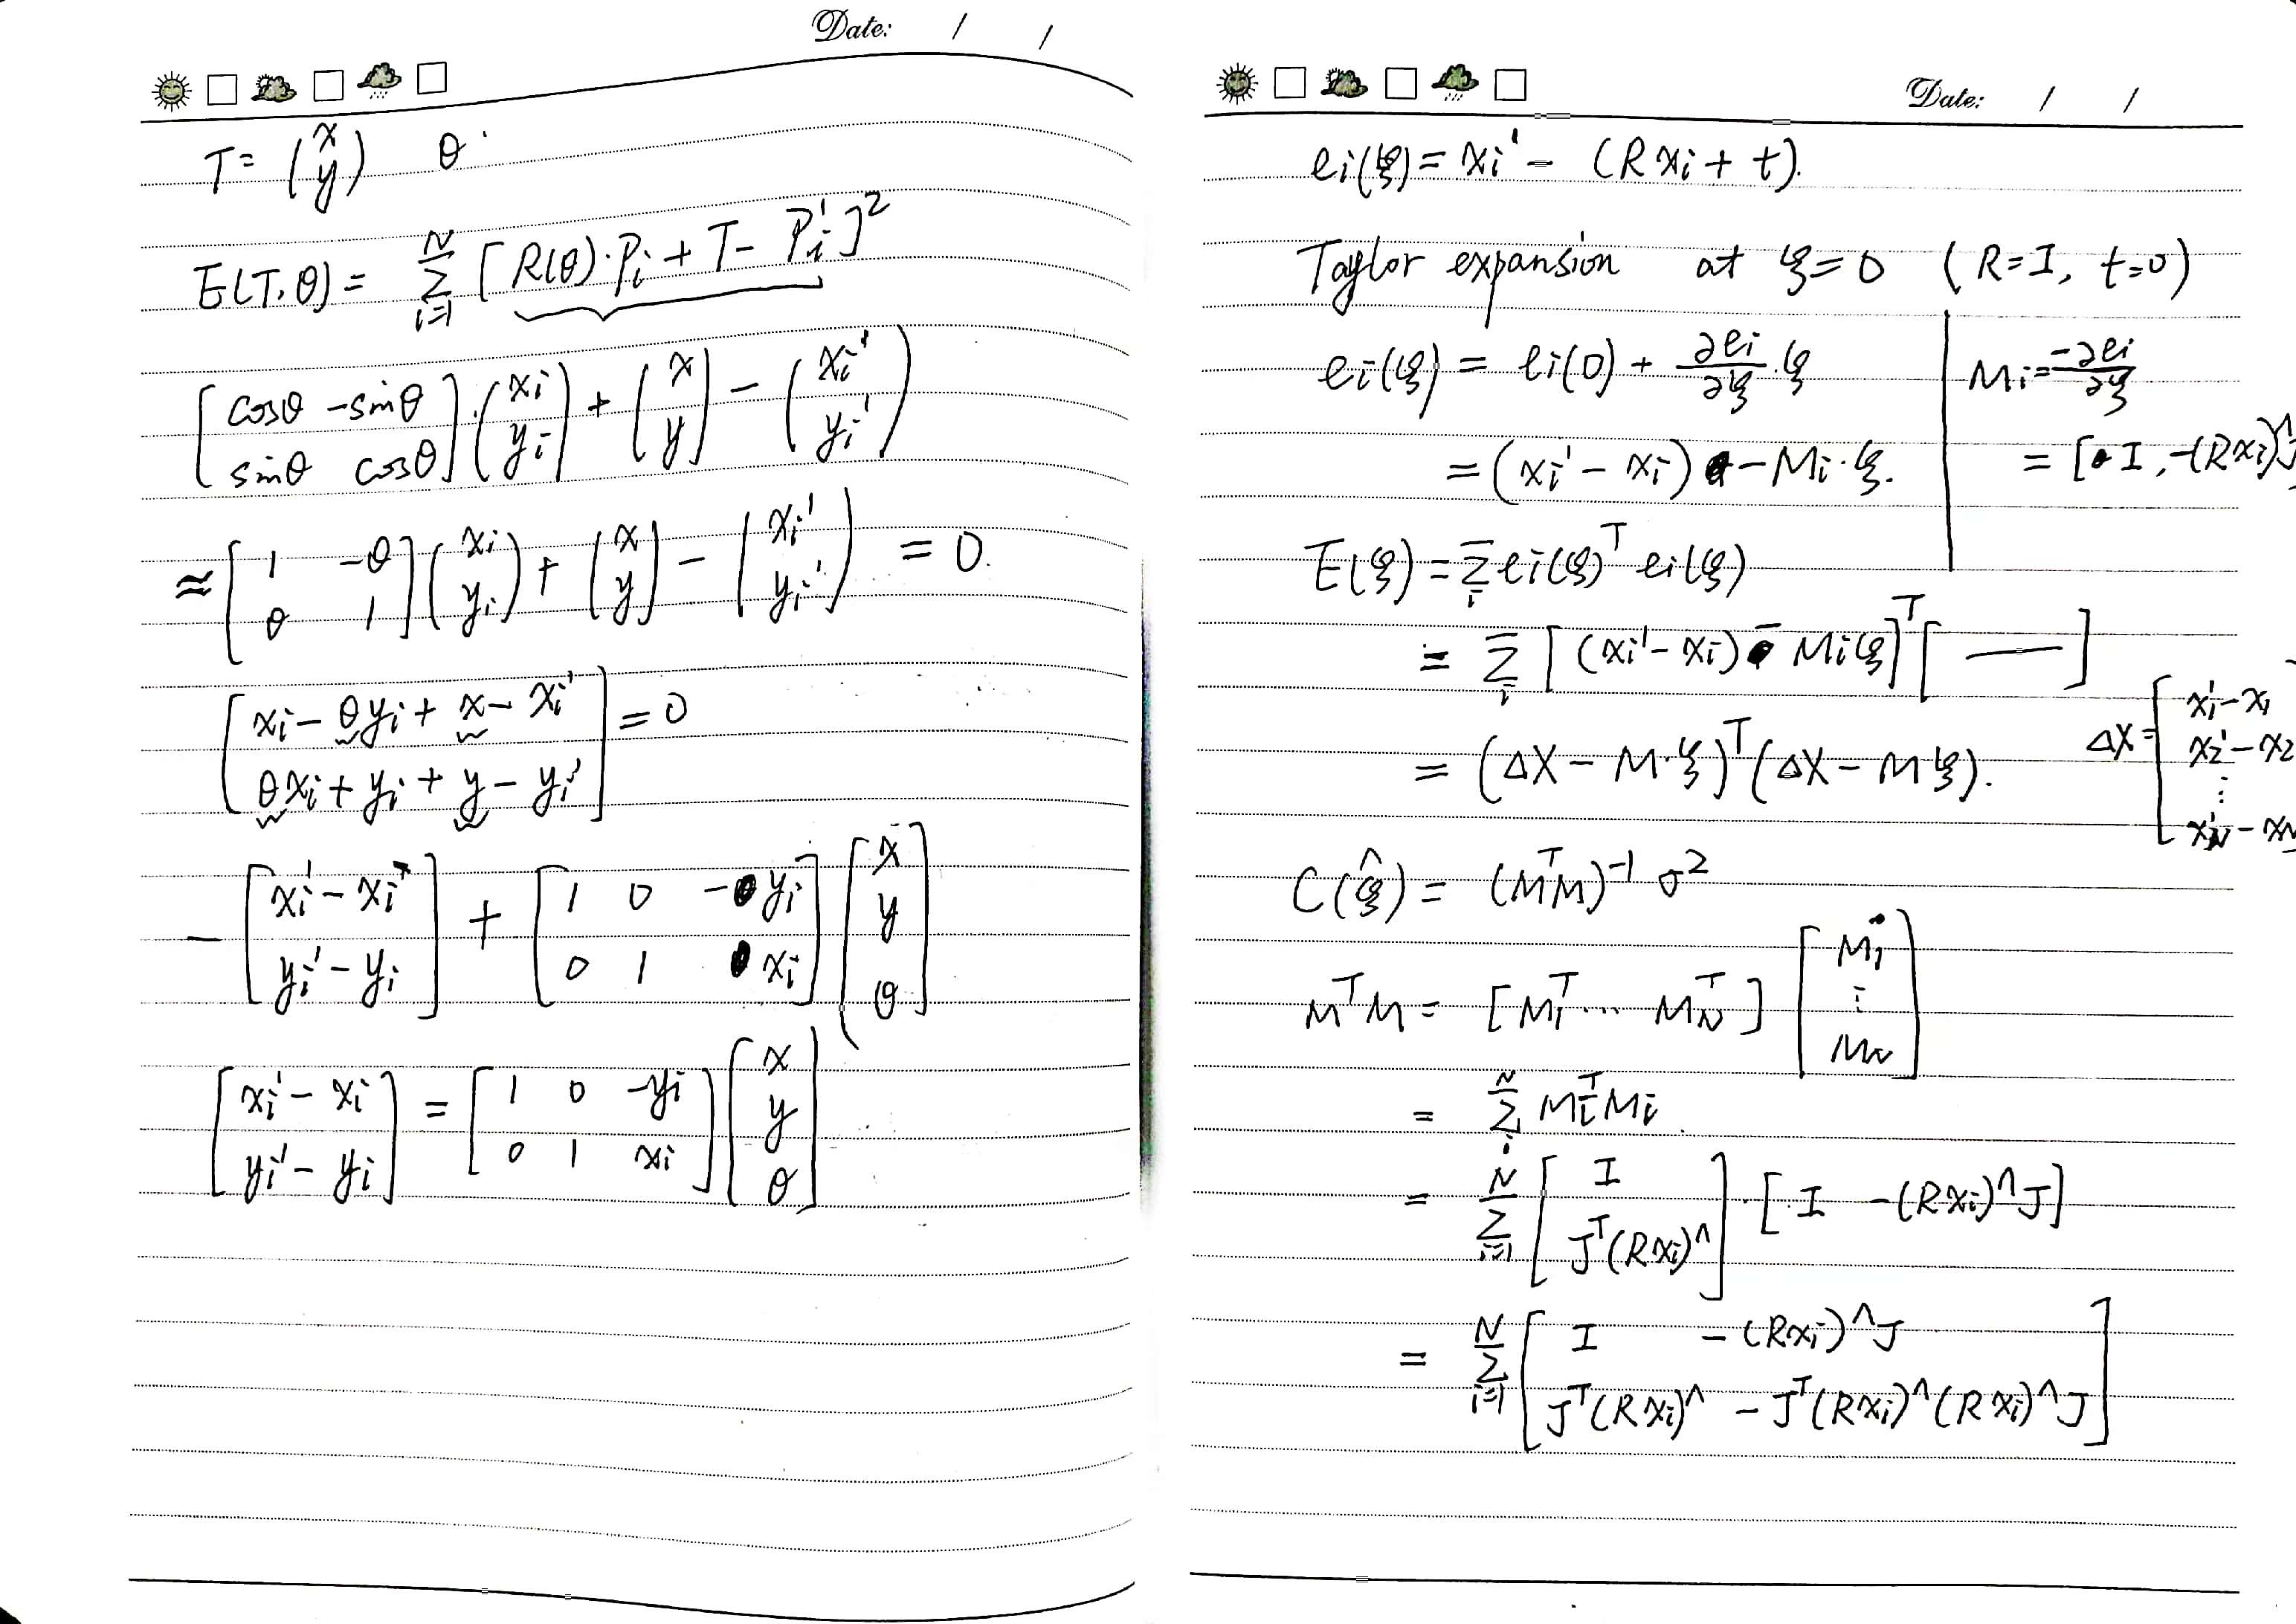 Date: / /
T = (x y) θ
E(T, θ) = Σ_{i=1}^{N} [R(θ)·P_i + T − P_i']²
[cosθ −sinθ; sinθ cosθ]·(x_i; y_i) + (x; y) − (x_i'; y_i')
≈ [1 −θ; θ 1](x_i; y_i) + (x; y) − (x_i'; y_i') = 0.
[x_i − θy_i + x − x_i'; θx_i + y_i + y − y_i'] = 0
−[x_i' − x_i; y_i' − y_i] + [1 0 −y_i; 0 1 x_i][x; y; θ]
[x_i' − x_i; y_i' − y_i] = [1 0 −y_i; 0 1 x_i][x; y; θ]
Date: / /
e_i(ξ) = x_i' − (Rx_i + t).
Taylor expansion at ξ=0 (R=I, t=0)
e_i(ξ) = e_i(0) + ∂e_i/∂ξ·ξ
= (x_i' − x_i) − M_i·ξ.
M_i = −∂e_i/∂ξ
= [I, −(Rx_i)^J
E(ξ) = Σ_i e_i(ξ)^T e_i(ξ)
= Σ_i [(x_i' − x_i) − M_iξ]^T [ — ]
= (ΔX − M·ξ)^T (ΔX − Mξ).
ΔX = [x_1' − x_1; x_2' − x_2; ⋮; x_N' − x_N
C(ξ̂) = (M^T M)^{-1} σ²
M^T M = [M_1^T ... M_N^T][M_1; ⋮; M_N]
= Σ_i^N M_i^T M_i
= Σ_{i=1}^{N} [I; J^T(Rx_i)^]·[I −(Rx_i)^J]
= Σ_{i=1}^{N} [I −(Rx_i)^J; J^T(Rx_i)^ −J^T(Rx_i)^(Rx_i)^J]